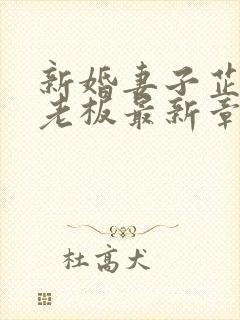 新婚妻子芷
老板最新章
杜高犬